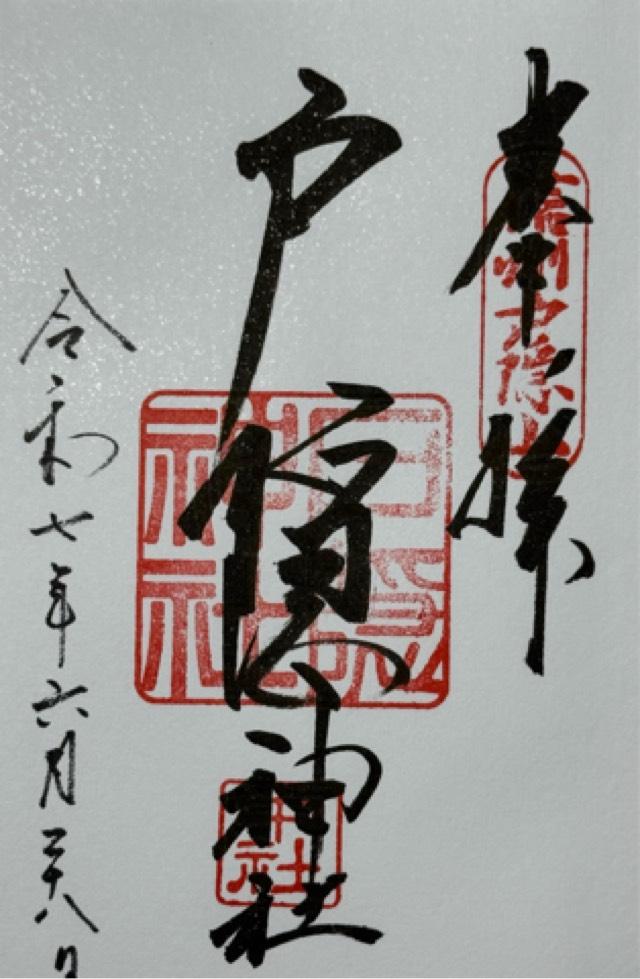 奉拝
信州戸隠山
戸隠神社
戸隠神社
中社
令和七年六月二十八日